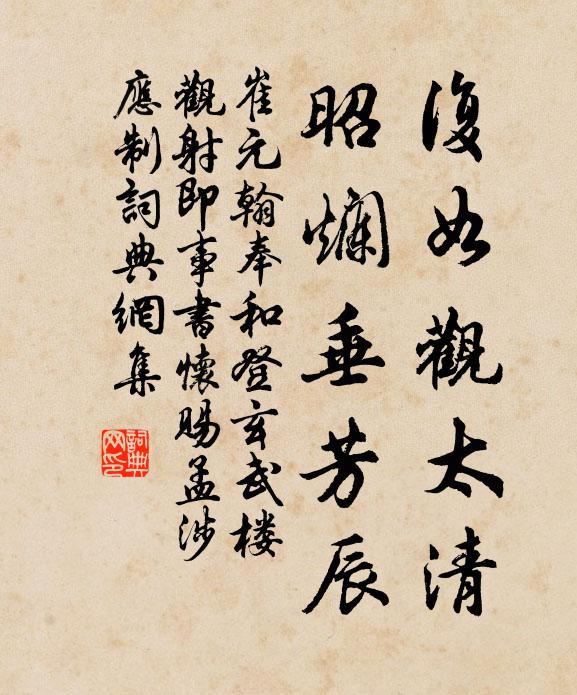 復如觀太清
昭爛垂芳辰
崔元翰奉和登玄武楼
觀射即事書懷賜孟涉
應制詞典網集
詞典网印